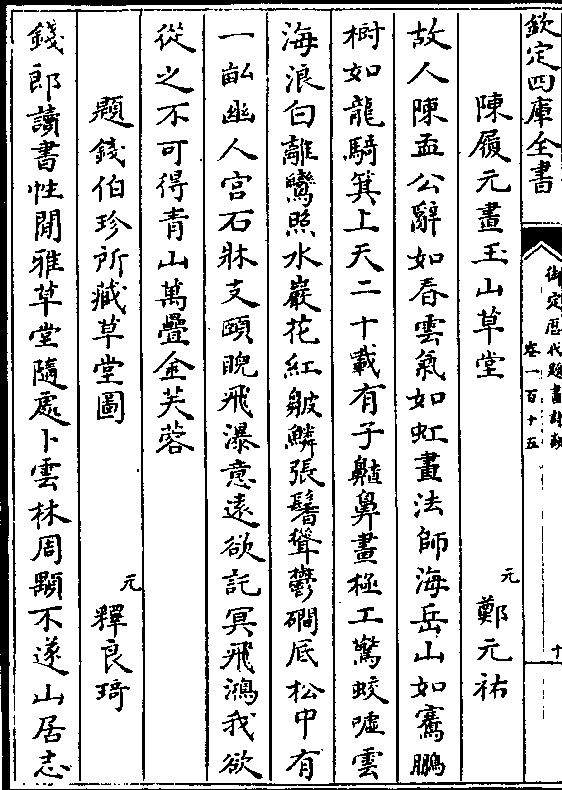 欽定四庫全書
御定歷代題畫詩類
卷一百十五
十
陳履元畫玉山草堂
元
鄭元祐
故人陳孟公辭如春雲氣如虹畫法師海岳山如騫鵬
樹如龍騎箕上天二十載有子齄鼻畫極工驚蛟噓雲
海浪白離鸞照水巖花紅皴鱗張鬐聲鬱磵底松中有
一畝幽人宫石牀支頤睨飛瀑意遠欲託冥飛鴻我欲
從之不可得青山萬疊金芙蓉
題錢伯珍所藏草堂圖
元
釋良琦
錢郎讀書性閒雅草堂隨處卜雲林周顒不遂山居志